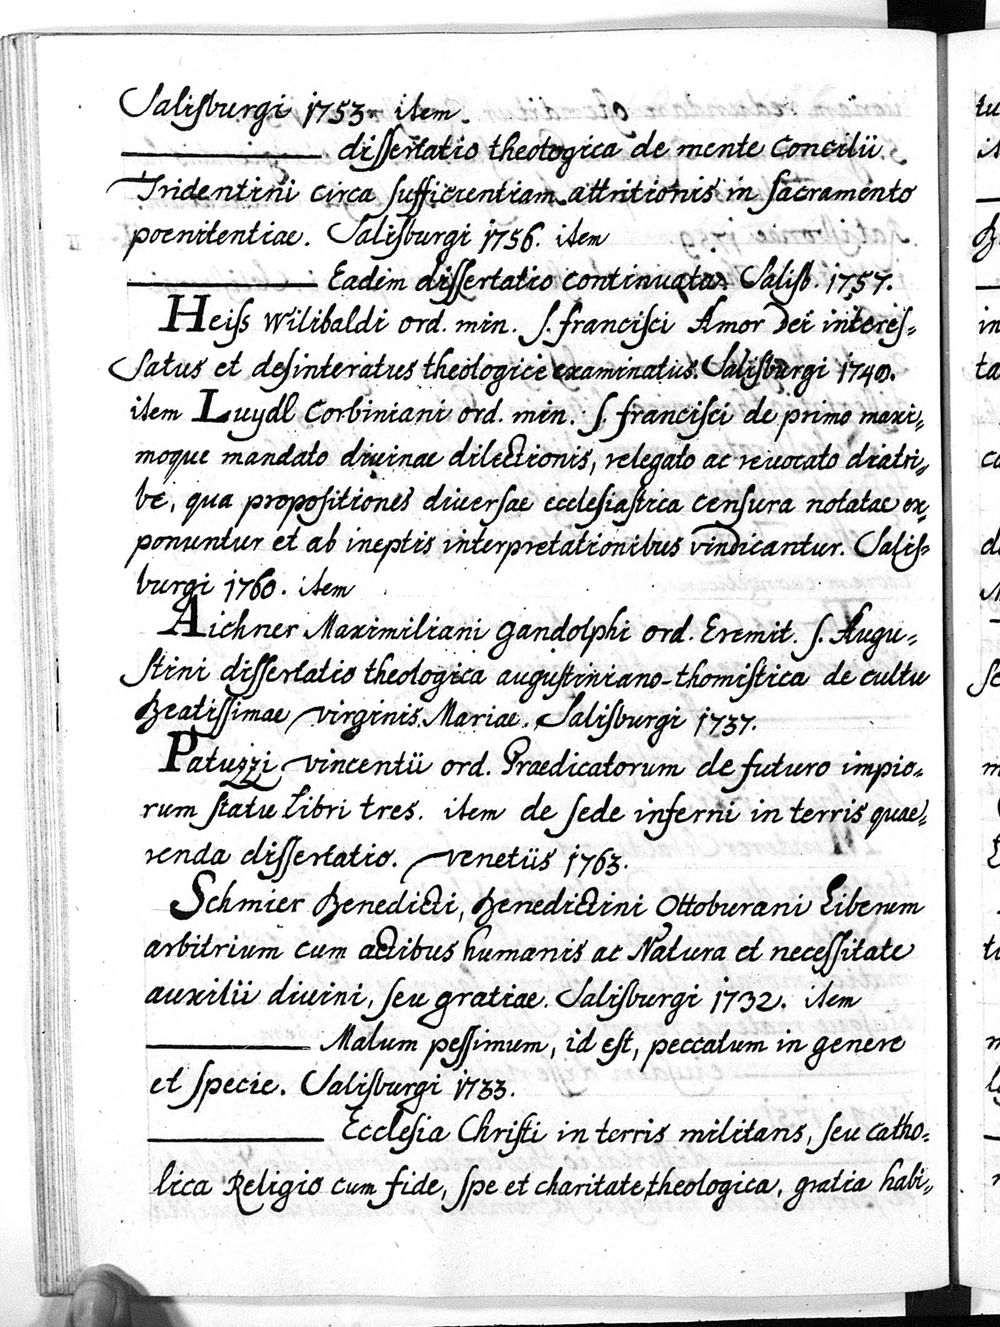 Salisburgi 1753. item.
________ dissertatio theologica de mente Concilii
Tridentini circa sufficientiam attritionis in sacramento
poenitentiae. Salisburgi 1756. item
________ Eadem dissertatio continuata. Salisb. 1757.
Heiss Wilibaldi ord. min. S. francisci Amor Dei interes-
satus et desinteratus theologicè examinatus. Salisburgi 1740.
item Luydl Corbiniani ord. min. S. francisci de primo maxi-
moque mandato divinae dilectionis, relegato ac revocato diatri-
be, qua propositiones diversae ecclesiastica censura notatae ex-
ponuntur et ab ineptis interpretationibus vindicantur. Salis-
burgi 1760. item
Aichner Maximiliani Gandolphi ord. Eremit. S. Augu-
stini dissertatio theologica augustiniano-thomistica de cultu
Beatissimae virginis Mariae. Salisburgi 1737.
Patuzzi vincentii ord. Praedicatorum de futuro impio-
rum statu Libri tres. item de sede inferni in terris quae-
renda dissertatio. venetiis 1763.
Schmier Benedicti, Benedictini Ottoburani Liberum
arbitrium cum actibus humanis ac Natura et necessitate
auxilii divini, seu gratiae. Salisburgi 1732. item
________ Malum pessimum, id est, peccatum in genere
et specie. Salisburgi 1733.
________ Ecclesia Christi in terris militans, seu catho-
lica Religio cum fide, spe et charitate theologica, gratia habi-